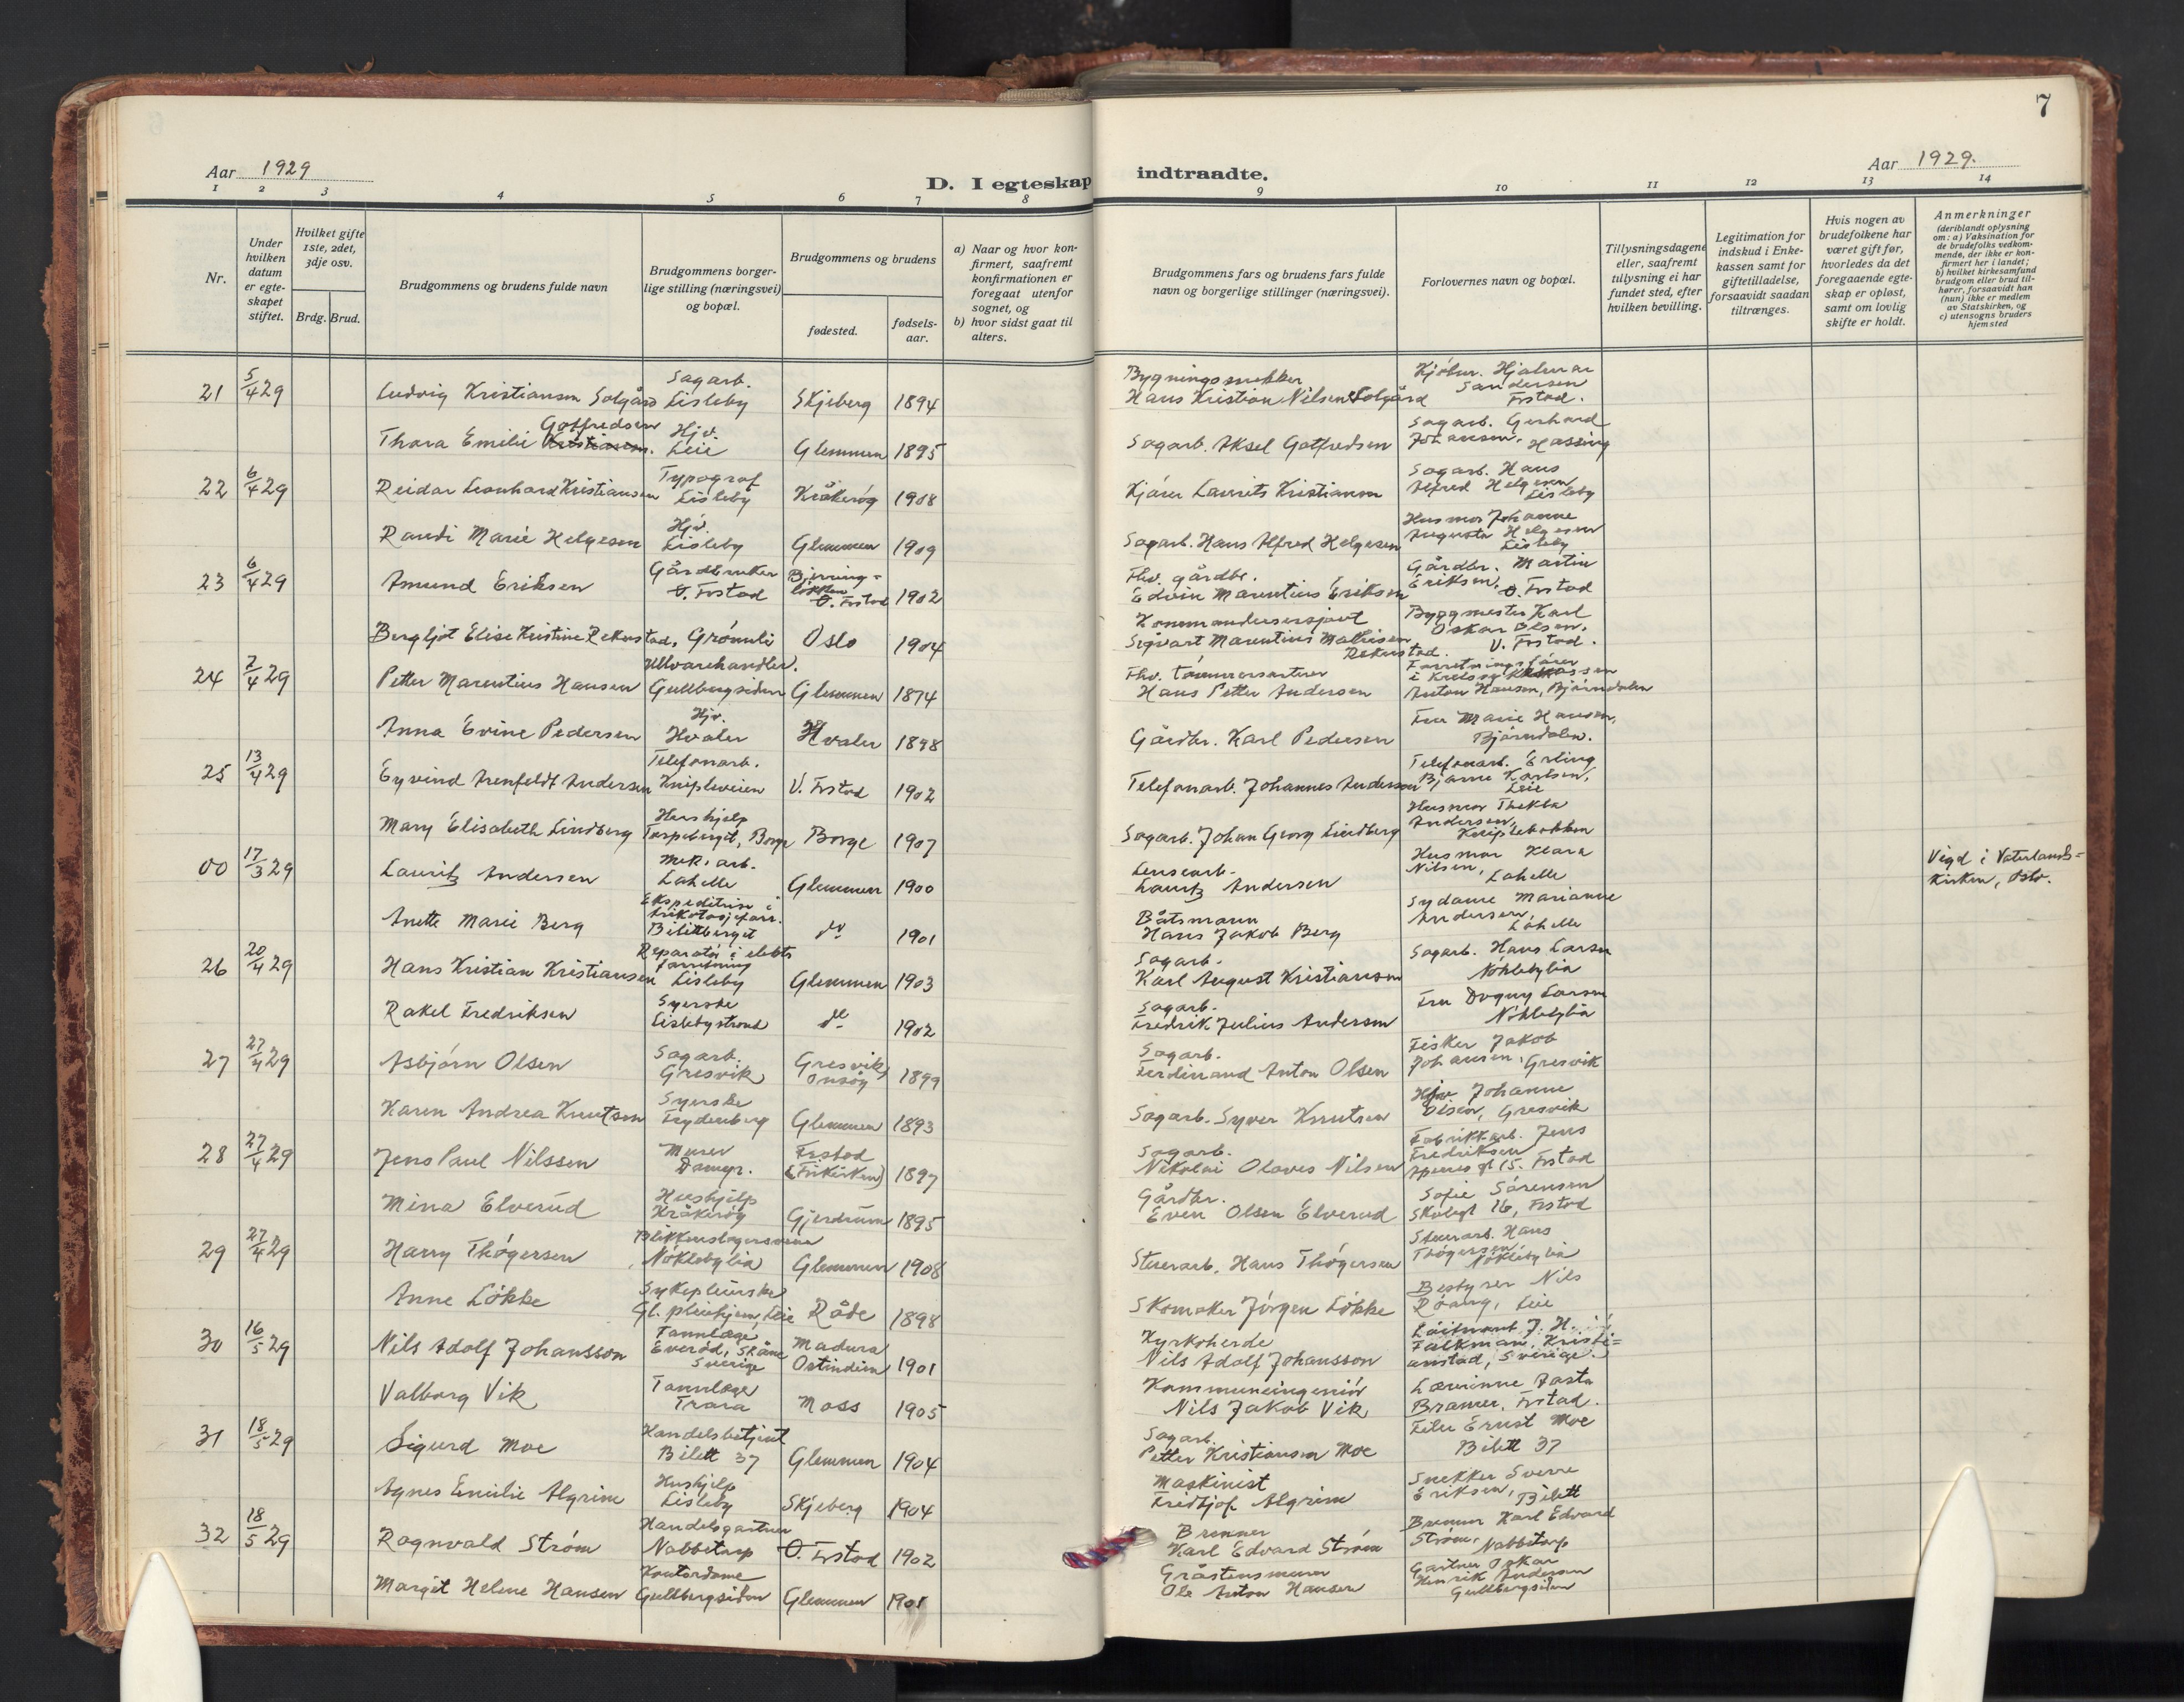 7
Aar 1929
D. I egteskap indtraadte.
Aar 1929.
1 2 3 4 5 6 7 8 9 10 11 12 13 14
Nr.
Under hvilken datum er egteskapet stiftet.
Hvilket gifte 1ste, 2det, 3dje osv.
Brdg. Brud.
Brudgommens og brudens fulde navn
Brudgommens borgerlige stilling (næringsvei) og bopæl.
Brudgommens og brudens
fødested.
fødselsaar.
a) Naar og hvor konfirmert, saafremt konfirmationen er foregaat utenfor sognet, og
b) hvor sidst gaat til alters.
Brudgommens fars og brudens fars fulde navn og borgerlige stillinger (næringsvei).
Forlovernes navn og bopæl.
Tillysningsdagene eller, saafremt tillysning ei har fundet sted, efter hvilken bevilling.
Legitimation for indskud i Enkekassen samt for giftetilladelse, forsaavidt saadan tiltrænges.
Hvis nogen av brudefolkene har været gift før, hvorledes da det foregaaende egteskap er opløst, samt om lovlig skifte er holdt.
Anmerkninger (deriblandt oplysning om: a) Vaksination for de brudefolks vedkommende, der ikke er konfirmert her i landet; b) hvilket kirkesamfund brudgom eller brud tilhører, forsaavidt han (hun) ikke er medlem av Statskirken, og c) utensogns bruders hjemsted
21 5/4 29 Ludvig Kristiansen Solgård Sagarb. Lisleby Skjeberg 1894 Bygningssnekker Hans Kristian Nilsen Solgård Kjøbm. Hjalmar Sandersen Frstad.
Thora Emilie Kristiansen. Gotfredsen Hjv. Leie Glemmen 1895 Sagarb. Aksel Gotfredsen Sagarb. Gerhard Johansen, Hassing
22 6/4 29 Reidar Leonhard Kristiansen Typograf Lisleby Kråkerøy 1908 Kjører Laurits Kristiansen Sagarb. Hans Alfred Helgesen Lisleby
Randi Marie Helgesen Hjv. Lisleby Glemmen 1909 Sagarb. Hans Alfred Helgesen Husmor Johanne Augusta Helgesen Lisleby
23 6/4 29 Amund Eriksen Gårdbruker Ø. Frstad Bjørningløkken Ø. Frstad 1902 Fhv. gårdbr. Edvin Marentius Eriksen Gårdbr. Martin Eriksen, Ø. Frstad
Bergljot Elise Kristine Rekustad, Grønli Oslo 1904 Kommandersersjant Sigvart Marentius Mathisen Rekustad. Byggmester Karl Oskar Olsen, V. Frstad.
24 7/4 29 Petter Marentius Hansen Ullvarehandler. Gullbergsiden Glemmen 1874 Fhv. tømmersorterer Hans Petter Andersen Forretningsfører i Kretssykekassen Anton Hansen, Bjørndalen
Anna Evine Pedersen Hjv. Hvaler Hvaler 1898 Gårdbr. Karl Pedersen Fru Marie Hansen, Bjørndalen.
25 13/4 29 Eyvind Arenfeldt Andersen Telefonarb. Knipleveien V. Frstad 1902 Telefonarb. Johannes Andersen Telefonarb. Erling Bjarne Karlsen, Leie
Mary Elisabeth Lindberg Hushjelp Torpeberget, Borge Borge 1907 Sagarb. Johan Georg Lindberg Husmor Thekla Andersen, Kniplebakken
00 17/3 29 Lauritz Andersen Mek. arb. Lahelle Glemmen 1900 Lensearb. Lauritz Andersen Husmor Klara Nilsen, Lahelle Vigd i Vaterlandskirken, Oslo.
Anette Marie Berg Ekspeditrise i trikotasjeforr. Bilettberget do 1901 Båtsmann Hans Jakob Berg Sydame Marianne Andersen, Lahelle
26 20/4 29 Hans Kristian Kristiansen Reparatør i elektr. forretning Lisleby Glemmen 1903 Sagarb. Karl August Kristiansen Sagarb. Hans Larsen Nøklebylia
Rakel Fredriksen Syerske Lislebystrand do 1902 Sagarb. Fredrik Julius Andersen Fru Dagny Larsen Nøklebylia
27 27/4 29 Asbjørn Olsen Sagarb. Gresvik Gresvik, Onsøy 1899 Sagarb. Ferdinand Anton Olsen Fisker Jakob Johansen, Gresvik
Karen Andrea Knutsen Syerske Frydenberg Glemmen 1893 Sagarb. Syver Knutsen Hjv Johanne Olsen, Gresvik
28 27/4 29 Jens Paul Nilssen Murer Damyr. Frstad (Frikirken) 1897 Sagarb. Nikolai Olaves Nilsen Fabrikkarb. Jens Fredriksen gt 15. Frstad
Mina Elverud Hushjelp Kråkerøy Gjerdrum 1895 Gårdbr. Even Olsen Elverud Sofie Sørensen Skolegt 16, Frstad
29 27/4 29 Harry Thøgersen Blikkenslagersvenn Nøklebylia Glemmen 1908 Stenarb. Hans Thøgersen Stenarb. Hans Thøgersen, Nøklebylia
Anne Løkke Sykepleierske Gl. pleiehjem, Leie Råde 1898 Skomaker Jørgen Løkke Bestyrer Nils Røang, Leie
30 16/5 29 Nils Adolf Johansson Tannlæge, Everød, Skåne Sverige Madura Ostindien 1901 Kyrkoherde Nils Adolf Johansson Løitnant J. H. Falkman, Kristianstad, Sverige.
Valborg Vik Tannlæge Trara Moss 1905 Kommuneingeniør Nils Jakob Vik Lærerinne Jasta Bramer, Frstad.
31 18/5 29 Sigurd Moe Handelsbetjent Bilett 37 Glemmen 1904 Sagarb. Petter Kristiansen Moe Filer Ernst Moe Bilett 37
Agnes Emilie Algrim Hushjelp Lisleby Skjeberg 1904 Maskinist Fredtjof Algrim Snekker Sverre Eriksen, Bilett
32 18/5 29 Ragnvald Strøm Handelsgartner Nabbetorp Ø. Frstad 1902 Brenner Karl Edvard Strøm Brenner Karl Edvard Strøm, Nabbetorp
Margit Helene Hansen Kontordame Gullbergsiden Glemmen 1901 Gråstensmurer Ole Anton Hansen Gartner Oskar Henrik Andersen Gullbergsiden